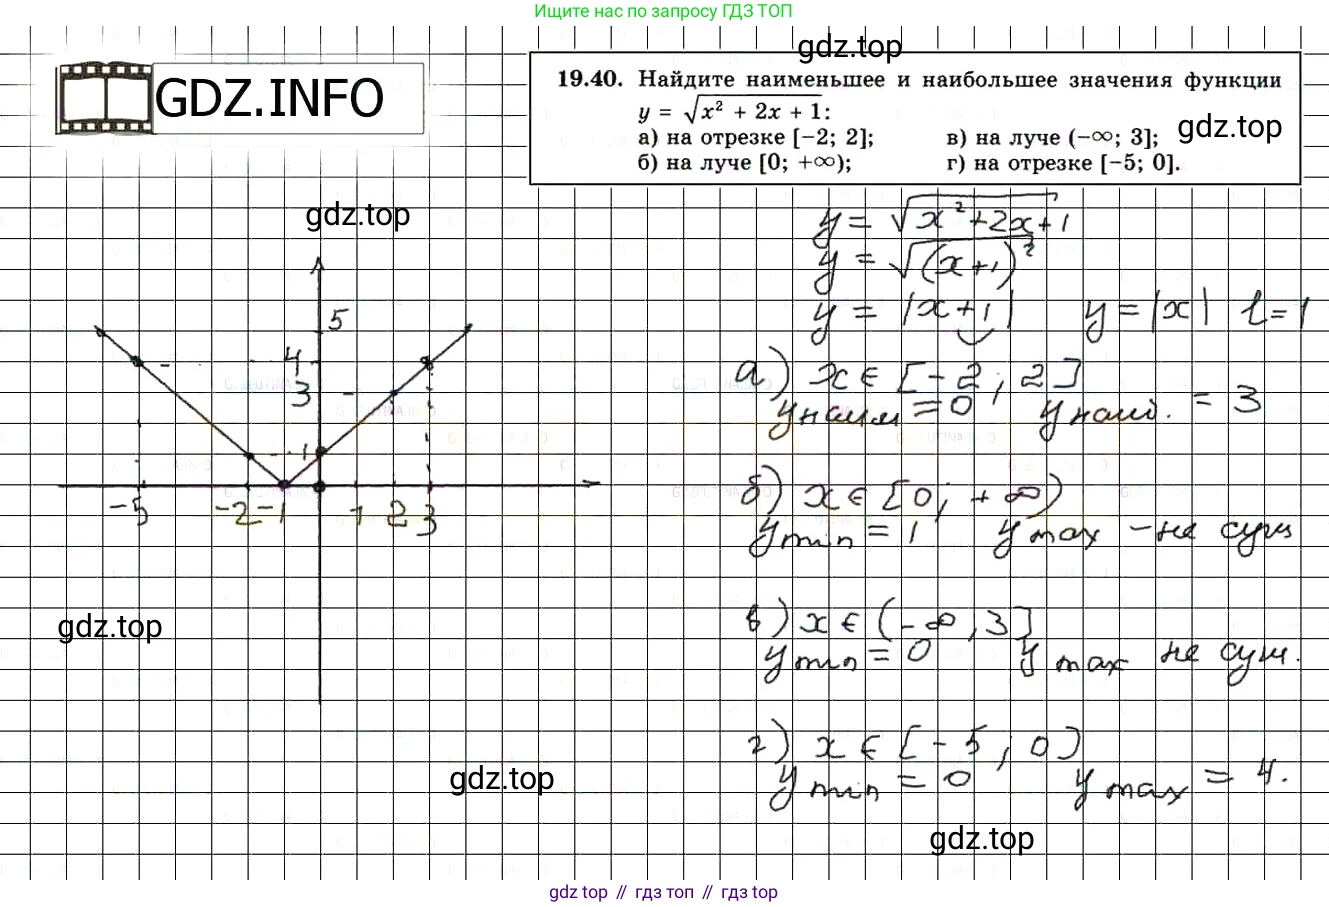 Ищите нас по запросу ГДЗ ТОП
gdz.top
GDZ.INFO
19.40. Найдите наименьшее и наибольшее значения функции
y = √x² + 2x + 1:
а) на отрезке [−2; 2];
в) на луче (−∞; 3];
gdz.top
б) на луче [0; +∞);
г) на отрезке [−5; 0].
gdz.top
y = √x²+2x+1
y = √(x+1)²
y = |x+1| y = |x| l=1
5
4
3
1
-5 -2 -1 1 2 3
а) x ∈ [-2; 2]
y наим = 0 y наиб. = 3
б) x ∈ [0; +∞)
y min = 1 y max - не сущ
в) x ∈ (-∞, 3]
y min = 0 y max не сущ.
gdz.top
г) x ∈ [-5; 0]
y min = 0 y max = 4.
gdz.top
gdz.top
gdz top // гдз топ // gdz top